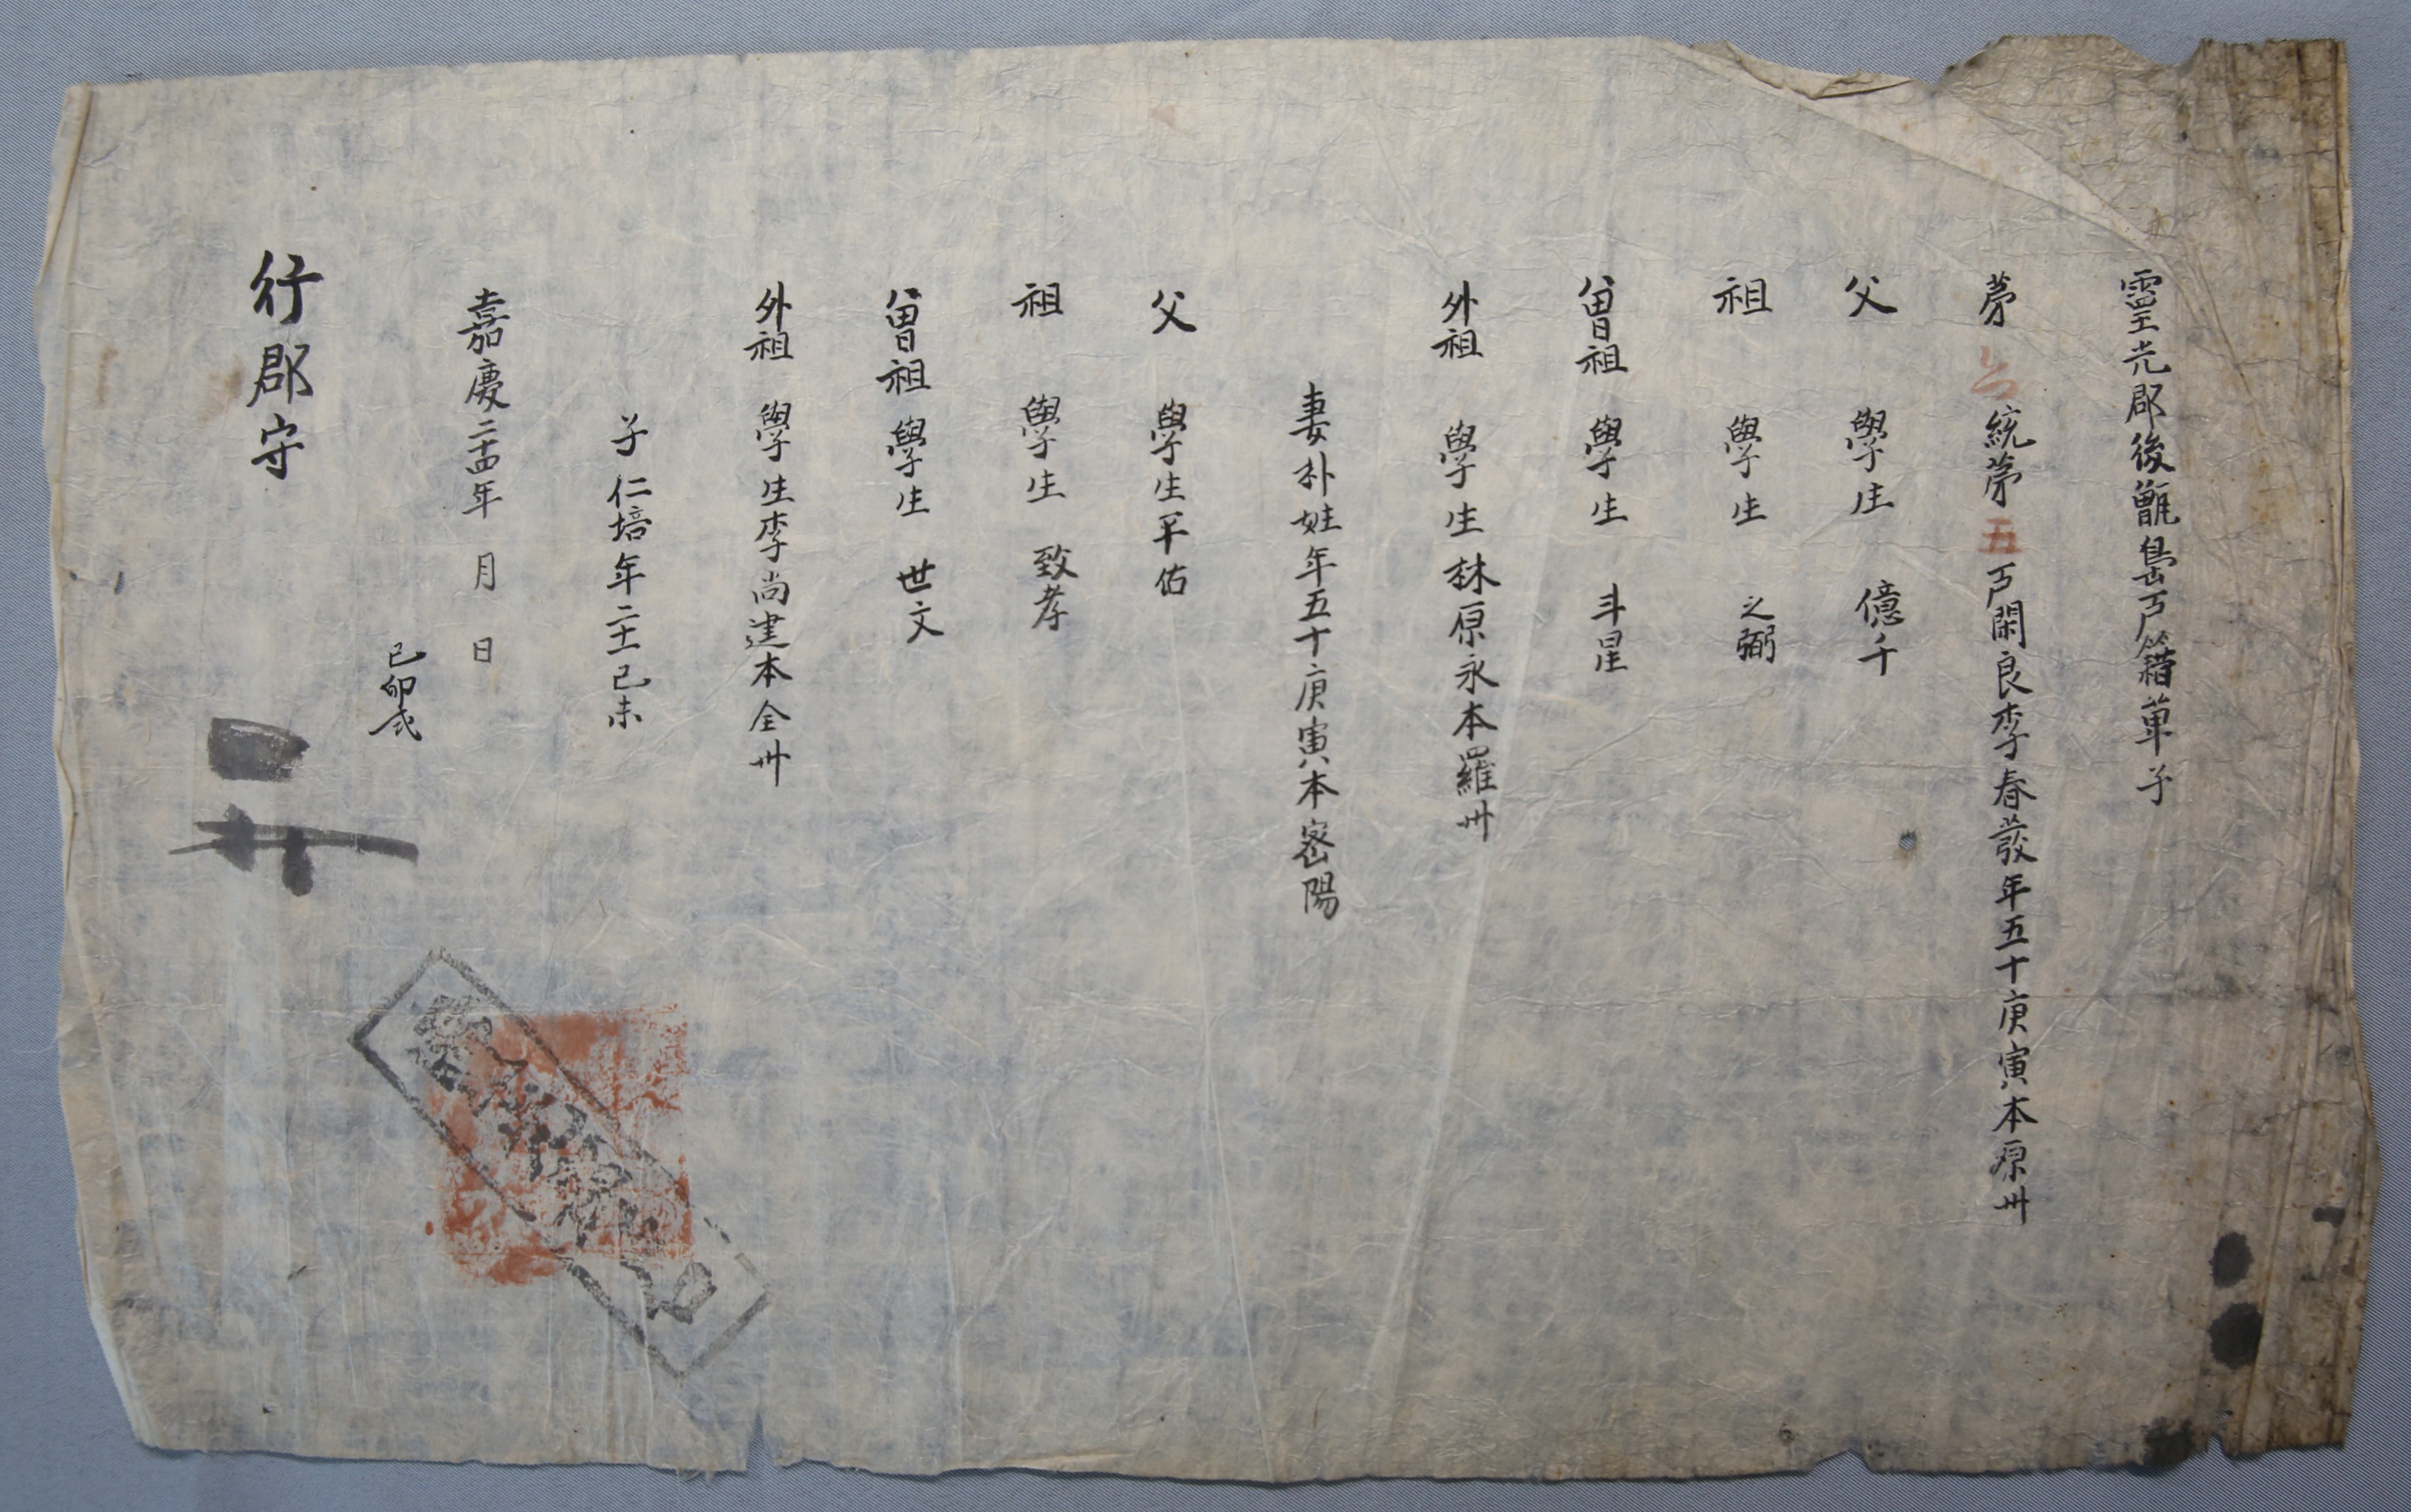 靈光郡後甑島戶籍單子
第 統第五戶閑良李春發年五十庚寅本原州
父 學生 億千
祖 學生 之弼
曾祖 學生 斗星
外祖 學生林原永本羅州
妻朴姓年五十庚寅本密陽
父 學生平佑
祖 學生 致孝
曾祖 學生 世文
外祖 學生李尚建本全州
子仁培年二十一己未
嘉慶二十四年 月 日
己卯式
行郡守